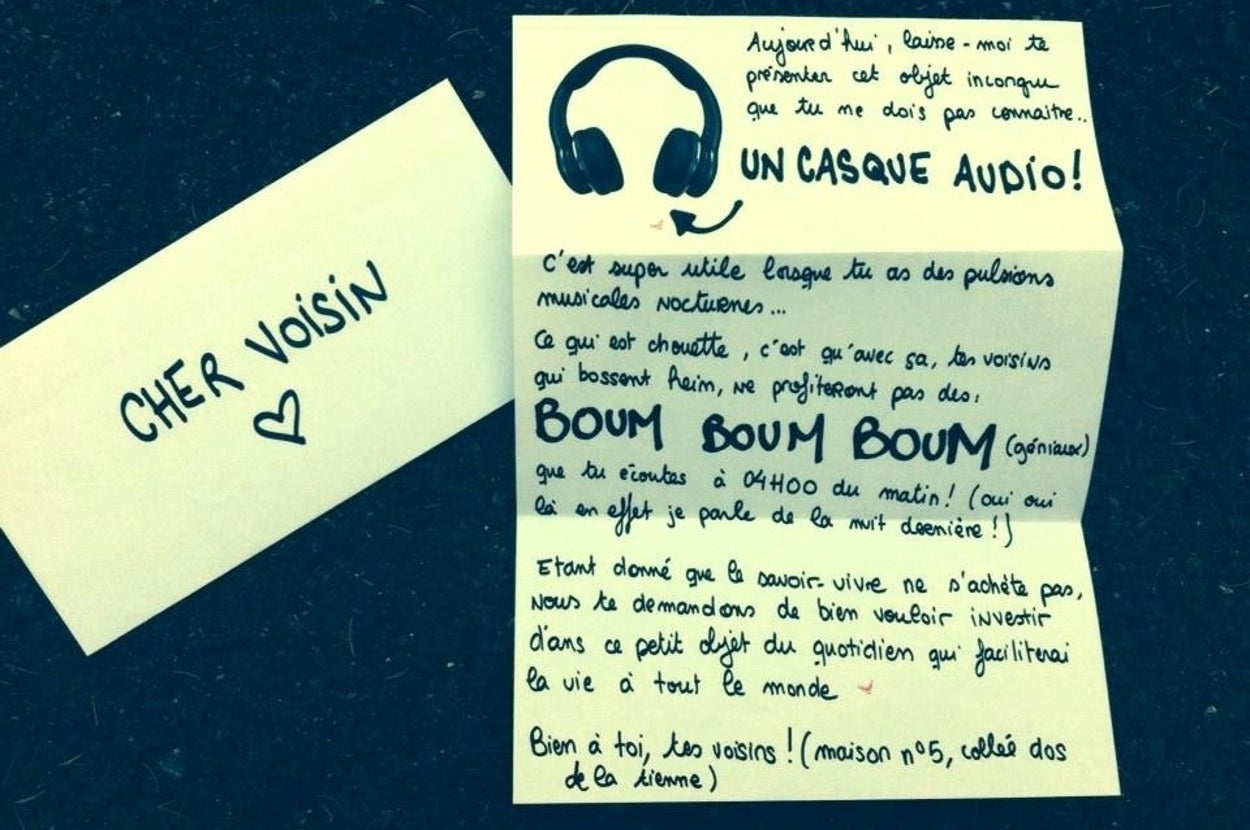 CHER VOISIN
Aujourd'hui, laisse-moi te
présenter cet objet inconnu
que tu ne dois pas connaitre..
UN CASQUE AUDIO!
C'est super utile lorsque tu as des pulsions
musicales nocturnes...
Ce qui est chouette, c'est qu'avec ça, tes voisins
qui bossent hein, ne profiteront pas des:
BOUM BOUM BOUM (géniaux)
que tu écoutes à 04H00 du matin! (oui oui
là en effet je parle de la nuit dernière!)
Etant donné que le savoir-vivre ne s'achète pas,
nous te demandons de bien vouloir investir
dans ce petit objet du quotidien qui faciliterai
la vie à tout le monde
Bien à toi, tes voisins! (maison n°5, collée dos
de la tienne)